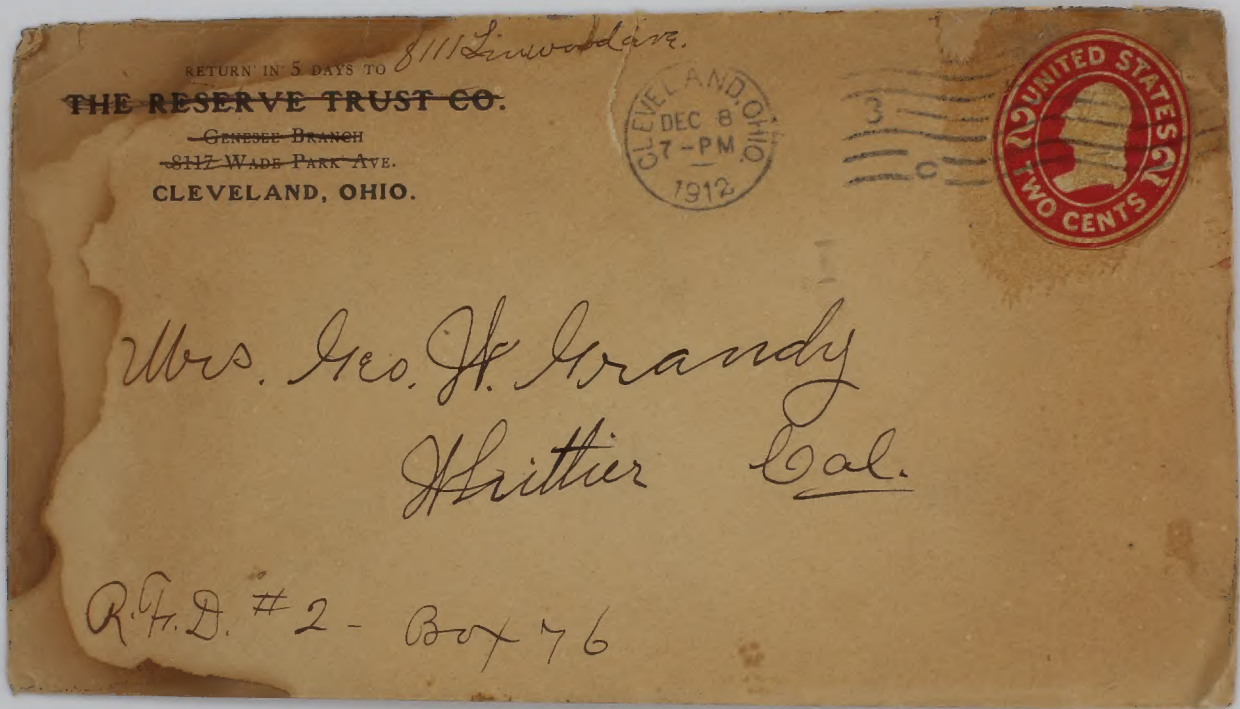 8111 Linwood ave.
RETURN IN 5 DAYS TO
THE RESERVE TRUST CO.
GENESEE BRANCH
8117 WADE PARK AVE.
CLEVELAND, OHIO.
CLEVELAND, OHIO.
DEC 8
7-PM
1912
3
C
UNITED STATES
2 2
TWO CENTS
I
Mrs. Geo. W. Grandy
Whittier Cal.
R.F.D. #2 - Box 76